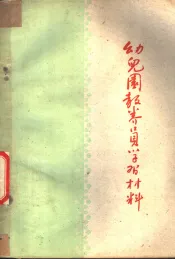 幼兒園教養員学習材料